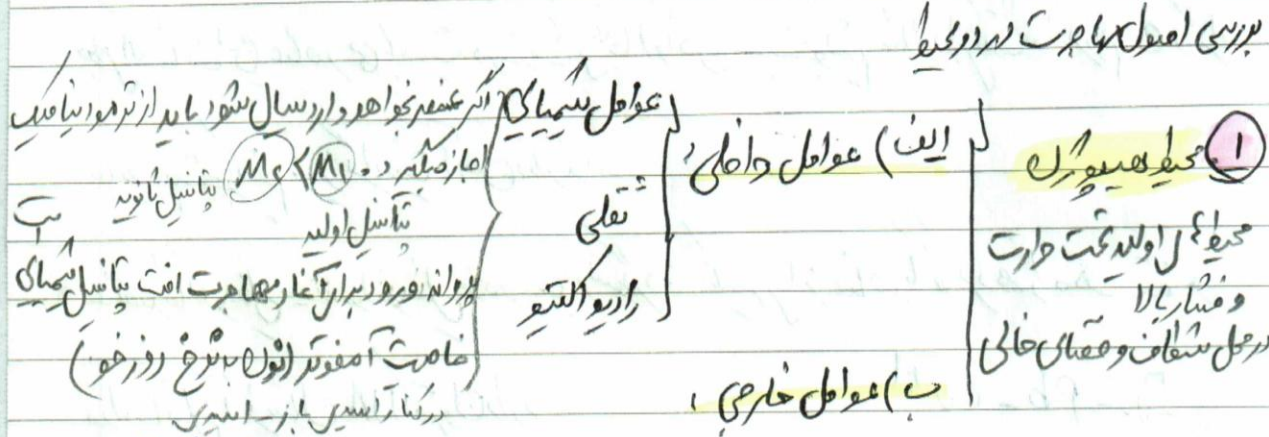 بررسی اصول مهاجرت در دو محیط
۱ محیط هیپوژن
محیط اولیه تحت حرارت
و فشار بالا
در محل شکاف و فضای خالی
الف) عوامل داخلی:
ب) عوامل خارجی:
عوامل شیمیایی
ثقلی
رادیواکتیو
اگر عنصر بخواهد وارد سیال شود باید از ترمودینامیک
اجازه بگیرد. M۲ < M۱ پتانسیل ثانویه
پتانسیل اولیه
پروانه ورود برای آغاز مهاجرت افت پتانسیل شیمیایی است
خاصیت آمفوتر (نون به نرخ روز خور)
در کنار اسیدی باز - اسیدی